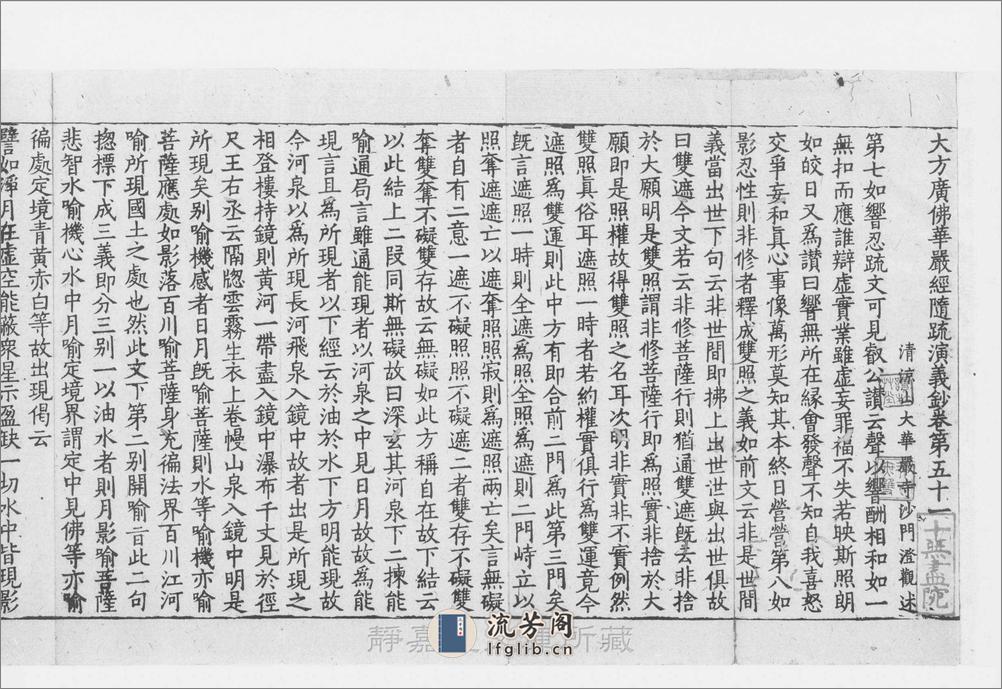 大方廣佛華嚴經隨疏演義鈔卷第五十一
清涼山大華嚴寺沙門澄觀述
第七如響忍疏文可見叡公讚云聲以響酬相和如一
無扣而應誰辯虛實業雖虛妄罪福不失若映斯照朗
如皎日又爲讚曰響無所在緣會發聲不知自我喜怒
交爭妄和真心事像萬形莫知其本終日營營第八如
影忍性則非修者釋成雙照之義如前文云非是世間
義當出世下句云非世間即拂上出世世與出世俱故
曰雙遮今文若云非修菩薩行則猶通雙遮旣云非捨
於大願明是雙照謂非修菩薩行即爲照實非捨於大
願即是照權故得雙照之名耳次明非實非不實例然
雙照真俗耳遮照一時者若約權實俱行爲雙運竟今
遮照爲雙運則此中方有即合前二門爲此第三門矣
旣言遮照一時則全遮爲照全照爲遮則二門峙立以
照奪遮遮亡以遮奪照照寂則爲遮照兩亡矣言無礙
者自有二意一遮不礙照照不礙遮二者雙存不礙雙
奪雙奪不礙雙存故云無礙如此方稱自在故下結云
以此結上二段同斯無礙故曰深玄其河泉下二揀能
喻通局言雖通能現者以河泉之中見日月故故爲能
現言且爲所現者以下經云於油於水下方明能現故
今河泉以爲所現長河飛泉入鏡中故者出是所現之
相登樓持鏡則黃河一帶盡入鏡中瀑布千丈見於徑
尺王右丞云隔牎雲霧生衣上卷幔山泉入鏡中明是
所現矣别喻機感者日月旣喻菩薩則水等喻機亦喻
菩薩應處如影落百川喻菩薩身充徧法界百川江河
喻所現國土之處也然此文下第二别開喻言此二句
揔標下成三義即分三别一以油水者則月影喻菩薩
悲智水喻機心水中月喻定境界謂定中見佛等亦喻
徧處定境青黄赤白等故出現偈云
譬如淨月在虛空能蔽衆星示盈缺一切水中皆現影
十無盡院
流芳阁
lfglib.cn
所藏